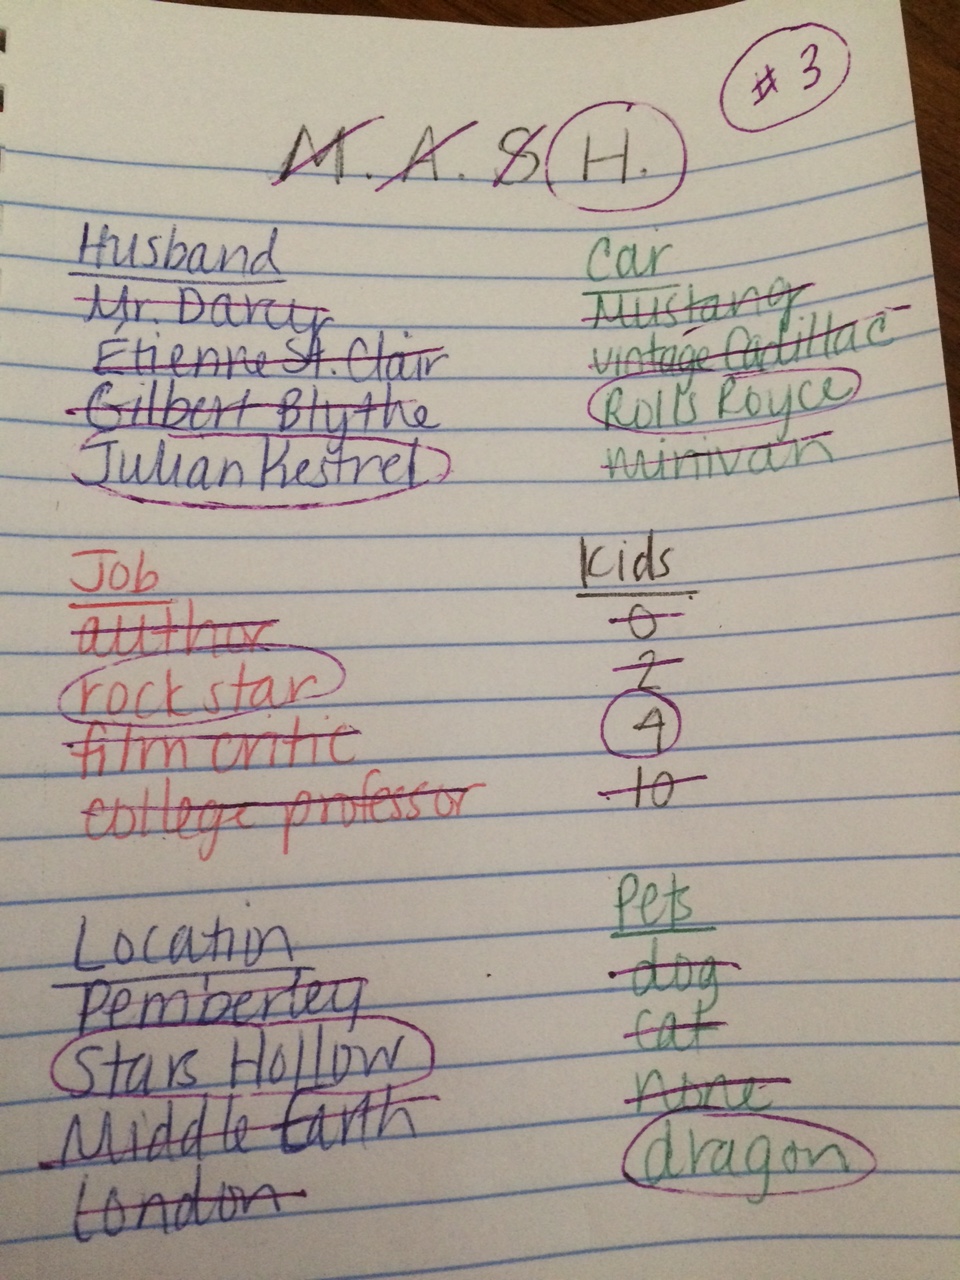 # 3
M. A. S H.
Husband
Mr. Darcy
Étienne St. Clair
Gilbert Blythe
Julian Kestrel
Car
Mustang
vintage Cadillac
Rolls Royce
minivan
Job
author
rock star
film critic
college professor
Kids
0
2
4
10
Location
Pemberley
Stars Hollow
Middle Earth
London
Pets
dog
cat
none
dragon